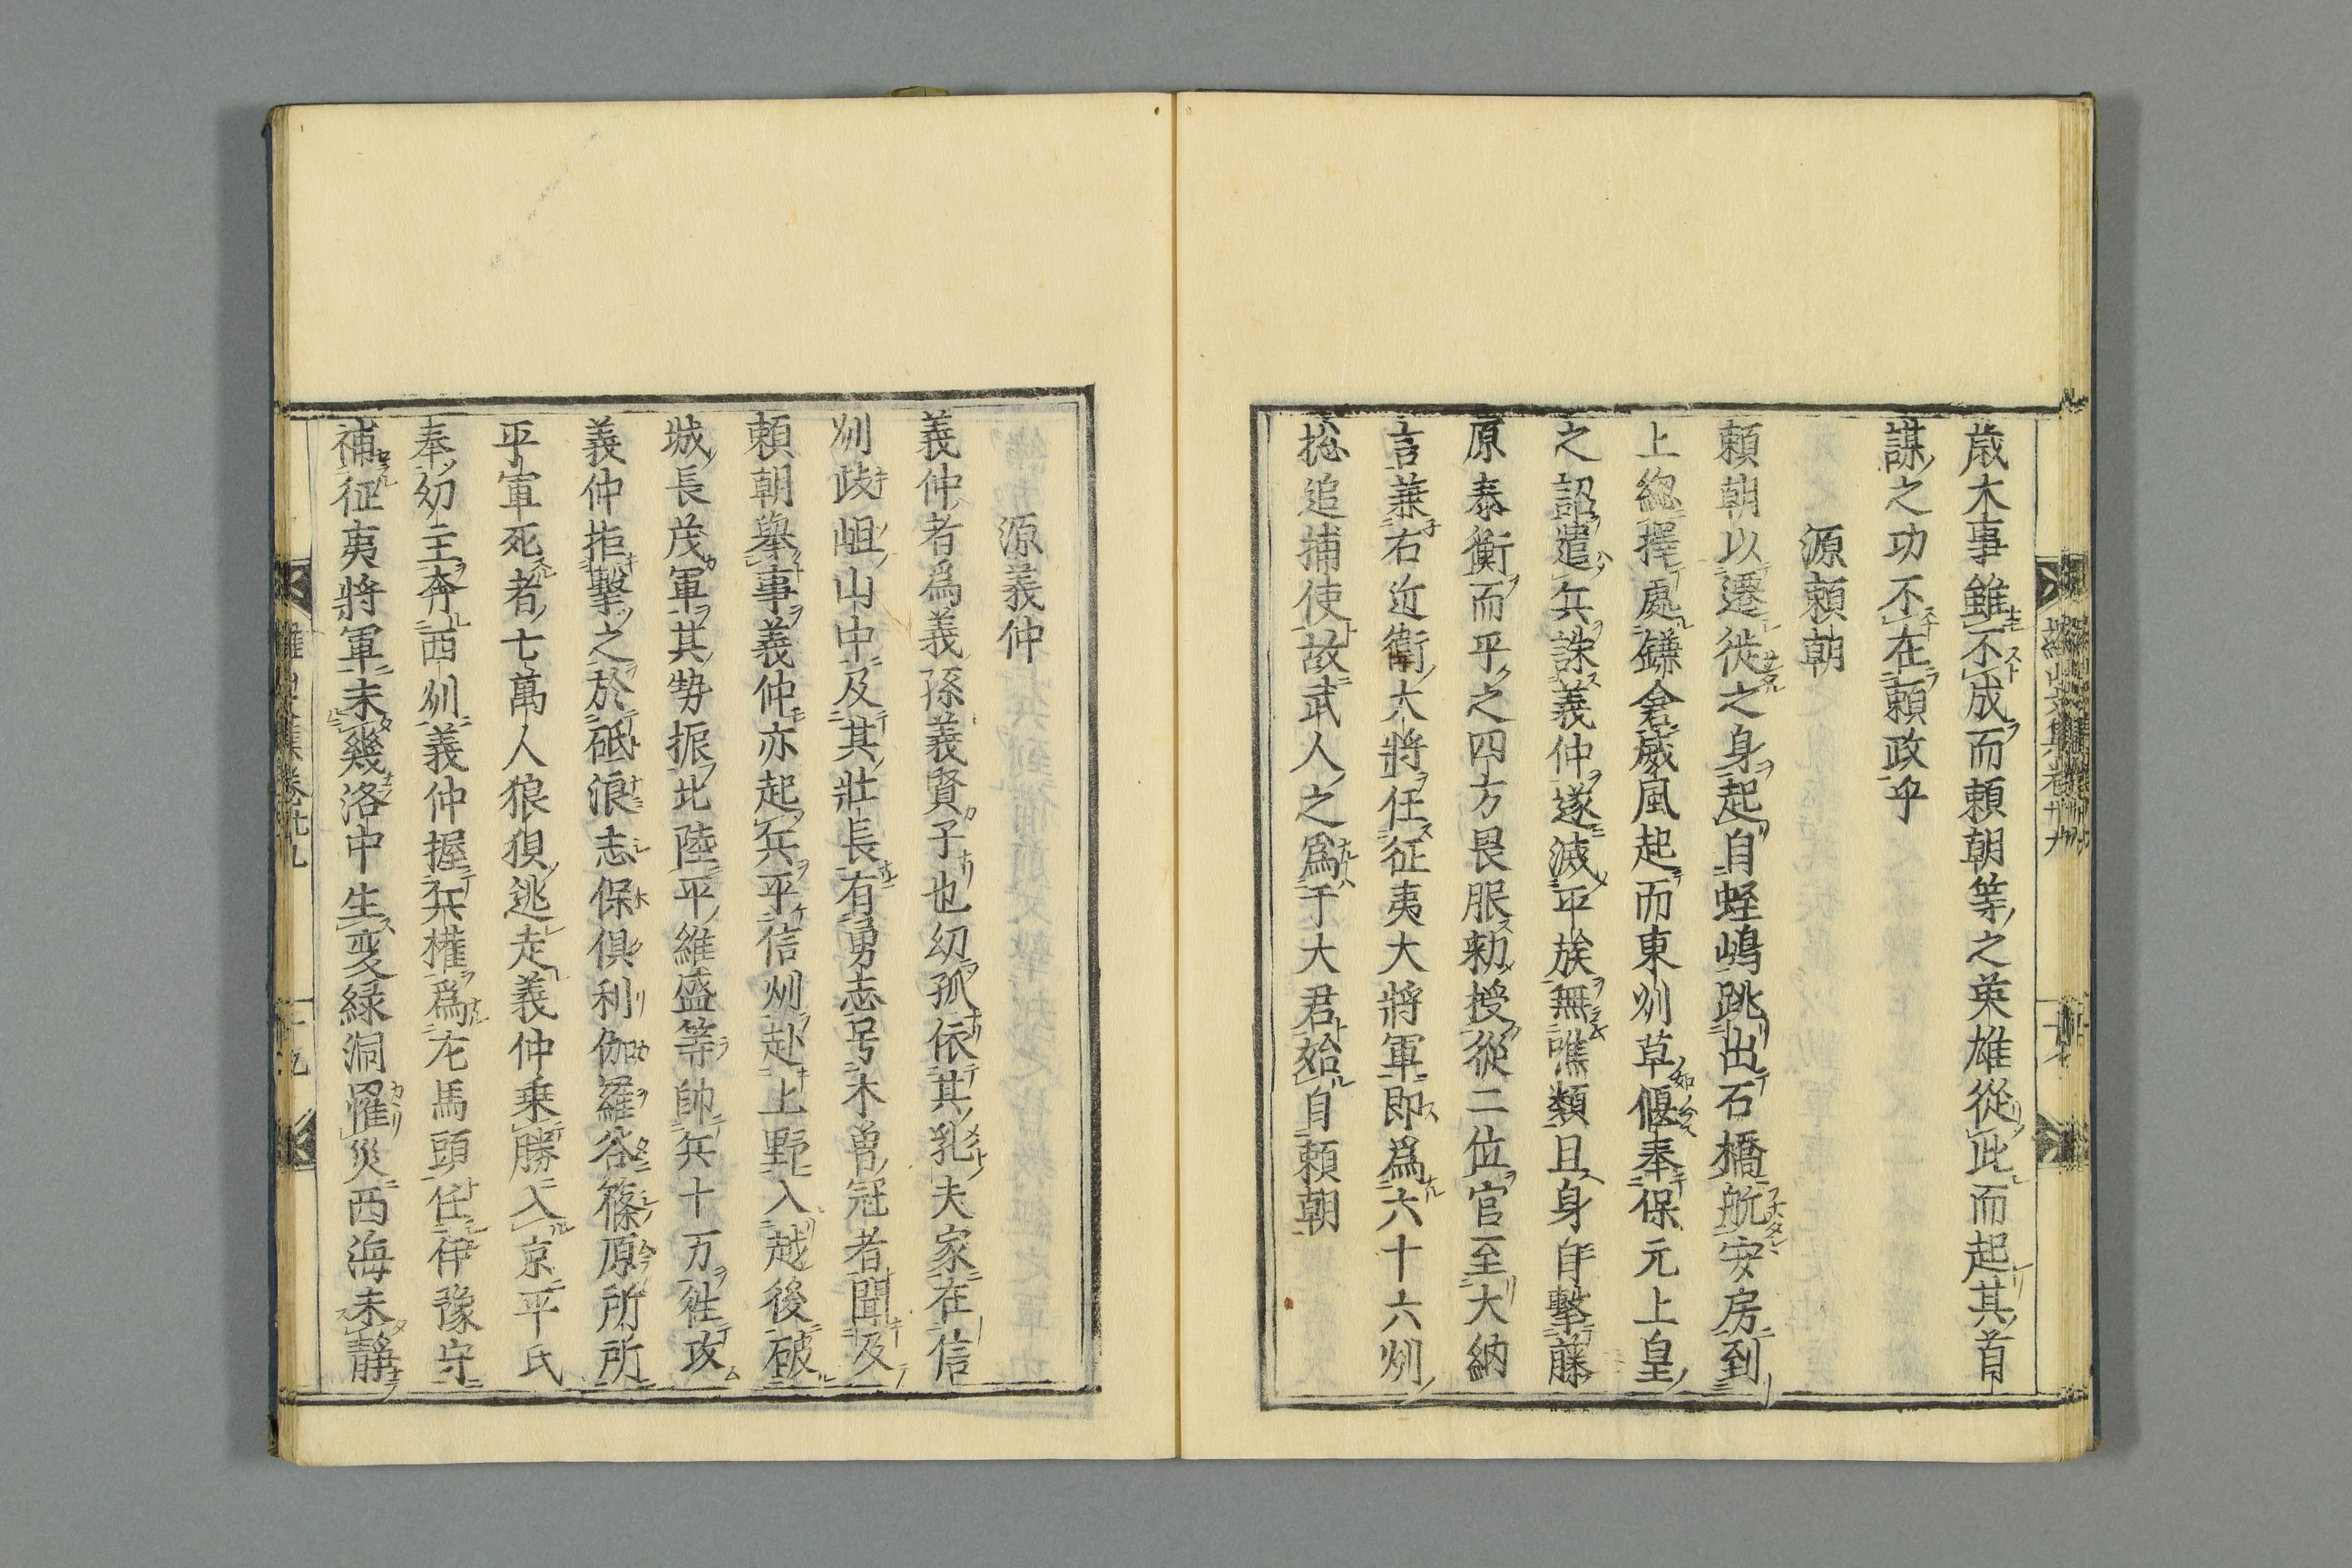 歳木事雖不成而頼朝等之英雄從此而起其首
謀之功不在頼政乎
源頼朝
頼朝以遷徙之身起自蛭嶋跳出石橋航安房到
上総擇處鎌倉威風起而東州草偃奉保元上皇
之詔遣兵誅義仲遂滅平族無噍類且身自擊藤
原泰衡而平之四方畏服勅授從二位官至大納
言兼右近衛大將任征夷大將軍即爲六十六州
捴追捕使故武人之爲于大君始自頼朝
源義仲
義仲者爲義孫義賢子也幼孤依其乳夫家在信
州歧岨山中及其壯長有勇志号木曽冠者聞及
頼朝舉事義仲亦起兵平信州赴上野入越後破
城長茂軍其勢振北陸平維盛等帥兵十万徃攻
義仲拒擊之於砥浪志保倶利伽羅谷篠原所所
平軍死者七萬人狼狽逃走義仲乗勝入京平氏
奉幼主奔西州義仲握兵權爲左馬頭任伊豫守
補征夷將軍未幾洛中生変緑洞罹災西海未靜